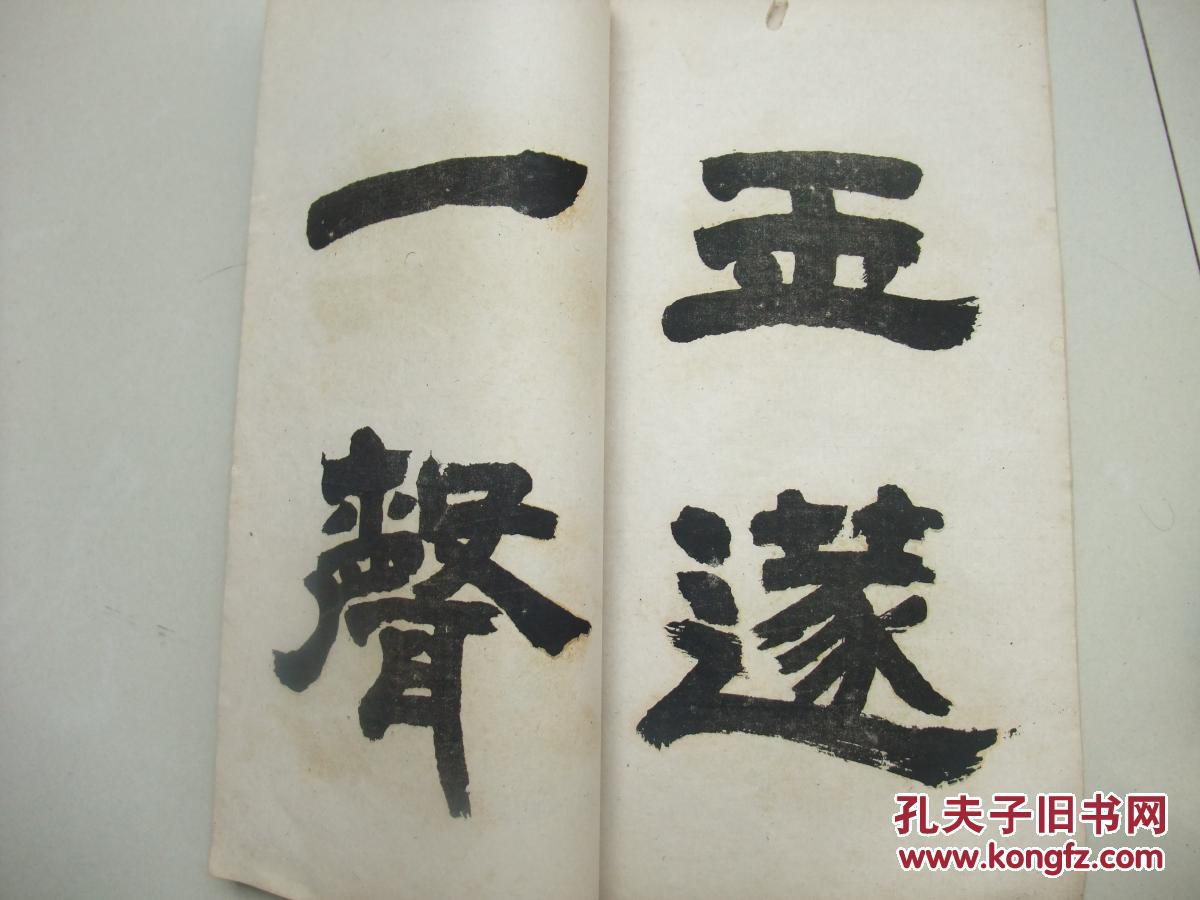 遂
一聲
孔夫子旧书网
www.kongfz.com